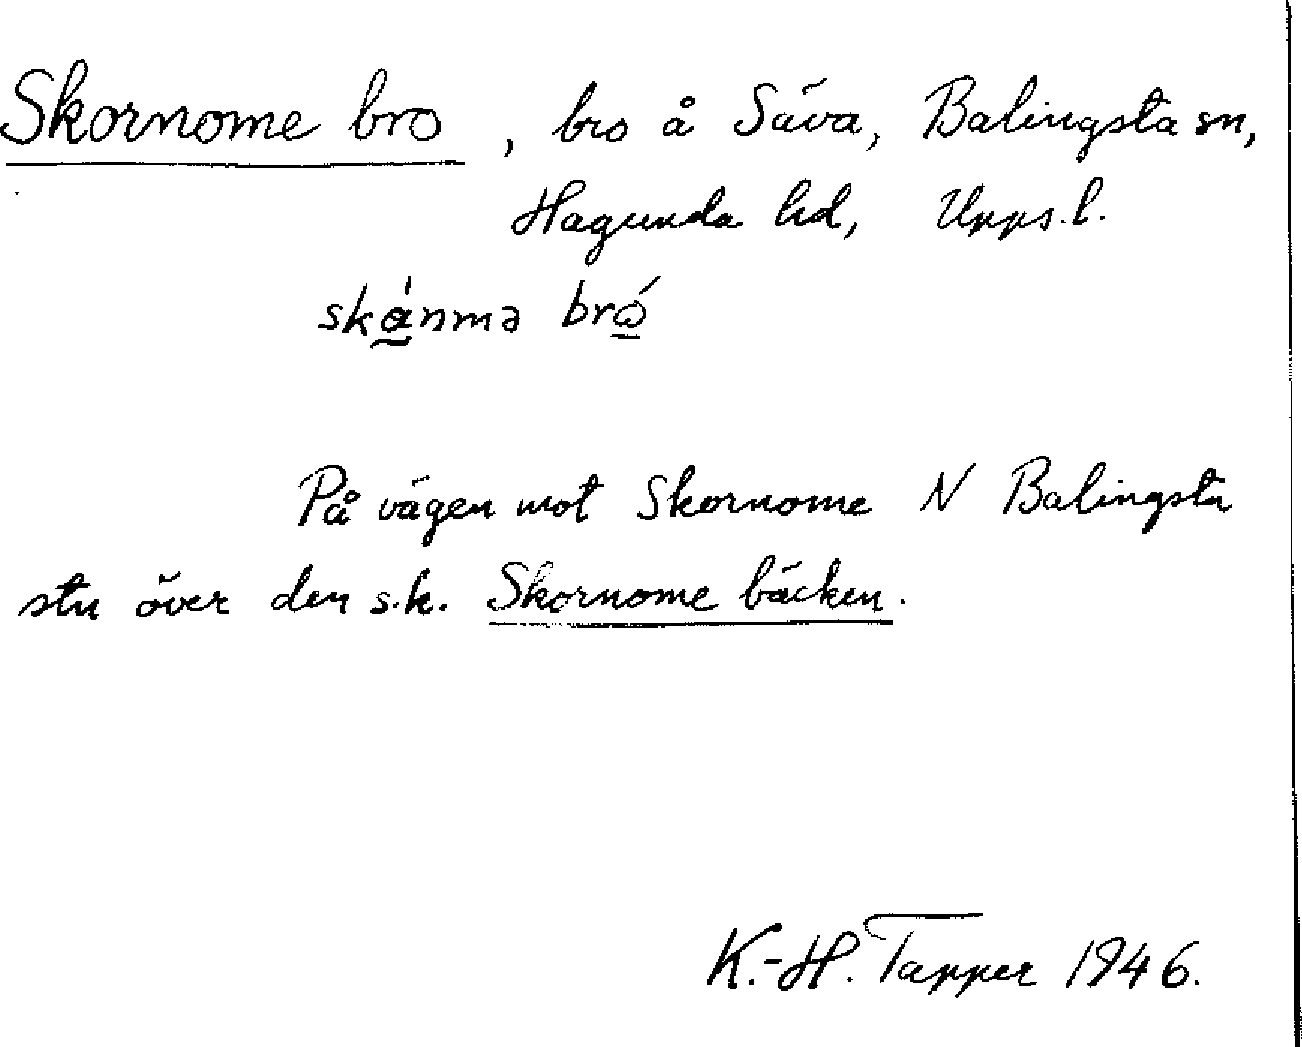 Skornome bro, bro å Säva, Balingsta sn,
Hagunda hd, Upps. l.
skánmə bró
På vägen mot Skornome N Balingsta
stn över den s.k. Skornome bäcken.
K.-H. Tapper 1946.